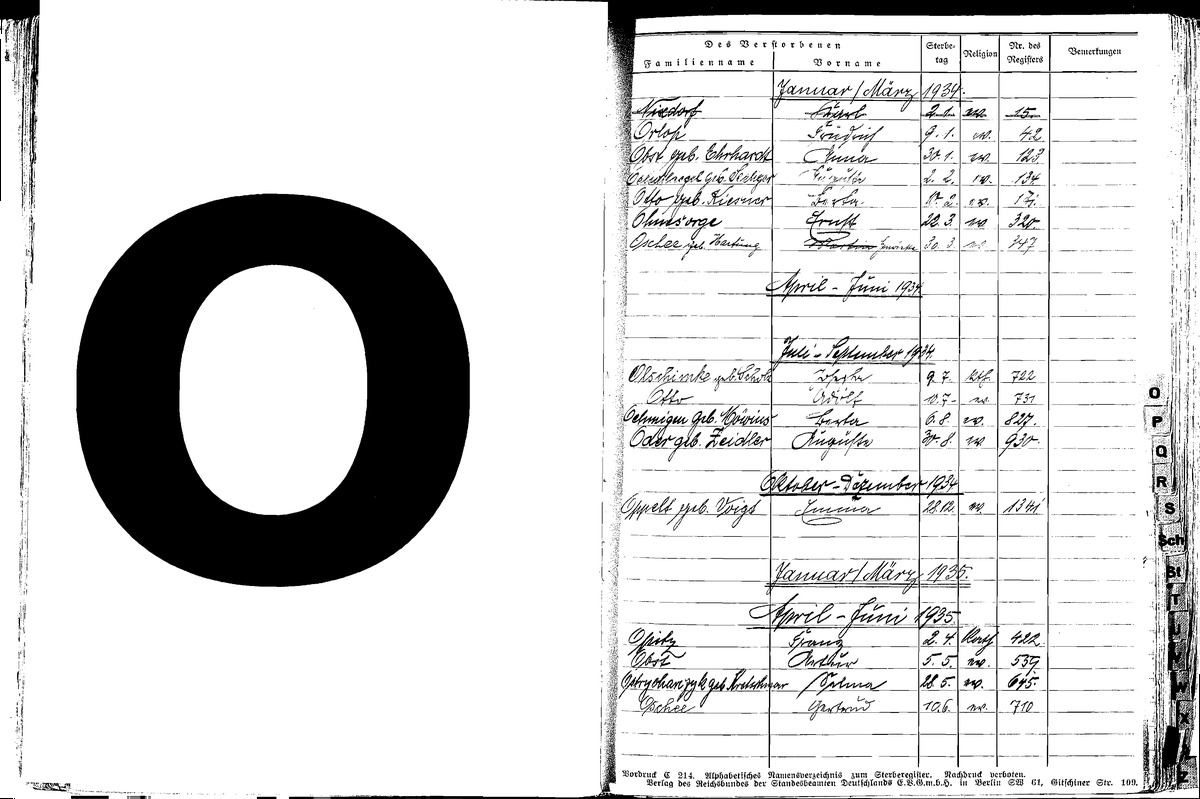 O
Des Verstorbenen Sterbe- Religion Nr. des Bemerkungen
Familienname Vorname tag Registers
Januar/März 1934.
Nixdorf Karl 2.1. ev. 15
Orlop Friedrich 9.1. ev. 42
Obst geb. Ehrhardt Anna 30.1. ev. 123
geb. Auguste 2.2. ev. 134
Otto geb. Kiesner Berta 2. ev. 171
Ohnesorge Ernst 22.3. ev. 320
Oschee geb. Hartung 30.3. ev. 347
April - Juni 1934
Juli - September 1934
Olschimke geb. Scholz 9.7. kth. 722
Otto Adolf 10.7. ev. 731
Oehmigen geb. Möwius Berta 6.8. ev. 827.
Oder geb. Zeidler Auguste 30.8. ev. 930
Oktober - Dezember 1934
Oppelt geb. Voigt Emma 28.12. ev. 1341
Januar/März 1935.
April - Juni 1935.
Opitz Franz 2.4. Kath 422
Obst Artur 5.5. ev. 539
geb. Kretschmar Selma 28.5. ev. 645
Oschee Gertrud 10.6. ev. 710
Vordruck C 214. Alphabetisches Namensverzeichnis zum Sterberegister. Nachdruck verboten.
Verlag des Reichsbundes der Standesbeamten Deutschlands E.V.G.m.b.H. in Berlin SW 61, Gitschiner Str. 109.
O
P
Q
R
S
Sch
St
T
U
V
W
X
Z